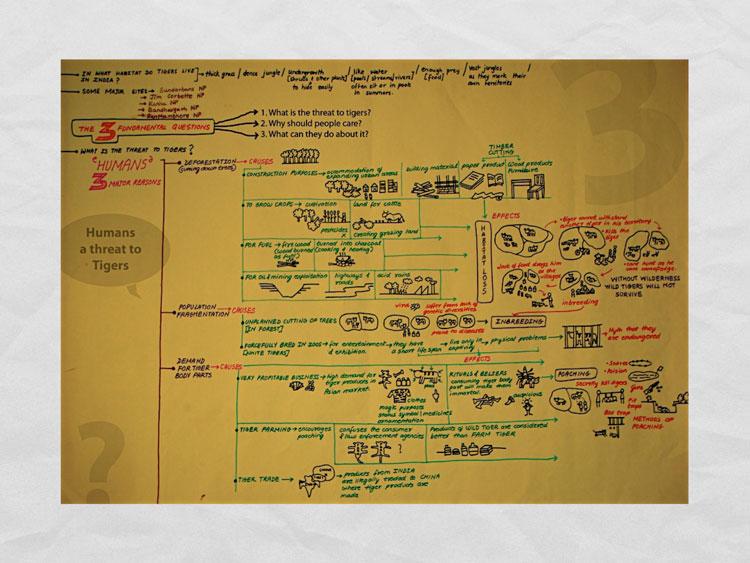 IN WHAT HABITAT DO TIGERS LIVE IN INDIA?
thick grass / dense jungle / undergrowth [shrubs & other plants] to hide easily / like water [pools/streams/rivers] often sit or in pools in summers. / enough prey [food] / vast jungles as they mark their own territories
SOME MAJOR SITES
Sundarbans NP
Jim Corbette NP
Kanha NP
Bandhavgarh NP
Ranthambhore NP
THE 3 FUNDAMENTAL QUESTIONS
1. What is the threat to tigers?
2. Why should people care?
3. What can they do about it?
WHAT IS THE THREAT TO TIGERS?
"HUMANS"
3 MAJOR REASONS
Humans
a threat to
Tigers
DEFORESTATION
CAUSES
CONSTRUCTION PURPOSES
accommodation of expanding urban areas
building material
TIMBER CUTTING
paper product
wood products
furniture
TO GROW CROPS
cultivation
land for cattle
pesticides
creating grazing land
FOR FUEL
firewood (wood burned as fuel)
burned into charcoal (cooking & heating)
FOR OIL & mining exploitation
highways & roads
acid rains
HABITAT LOSS
EFFECTS
tiger cannot withstand another tiger in his territory
kills the tiger
lack of food drags him to the villages
inbreeding
WITHOUT WILDERNESS WILD TIGERS WILL NOT SURVIVE
POPULATION FRAGMENTATION
CAUSES
UNPLANNED CUTTING OF TREES [IN FOREST]
suffer from lack of genetic diversities
prone to diseases
INBREEDING
FORCEFULLY BRED IN ZOOS [WHITE TIGERS]
for entertainment & exhibition
they have a short life span
live only in captivity
physical problems
Myth that they are endangered
DEMAND FOR TIGER BODY PARTS
CAUSES
EFFECTS
VERY PROFITABLE BUSINESS
high demand for tiger products in Asian market.
clothes
magic purposes
status symbol
medicines
ornamentation
RITUALS & BELIEFS
consuming tiger body part will make them immortal
auspicious
POACHING
Snares
Poison
secretly kill tigers
Guns
Pit traps
Box trap
METHODS OF POACHING
TIGER FARMING
encourages poaching
confuses the consumer & law enforcement agencies
?
Products of WILD TIGER are considered better than FARM TIGER
TIGER TRADE
products from INDIA are illegally traded to CHINA where tiger products are made
3
?